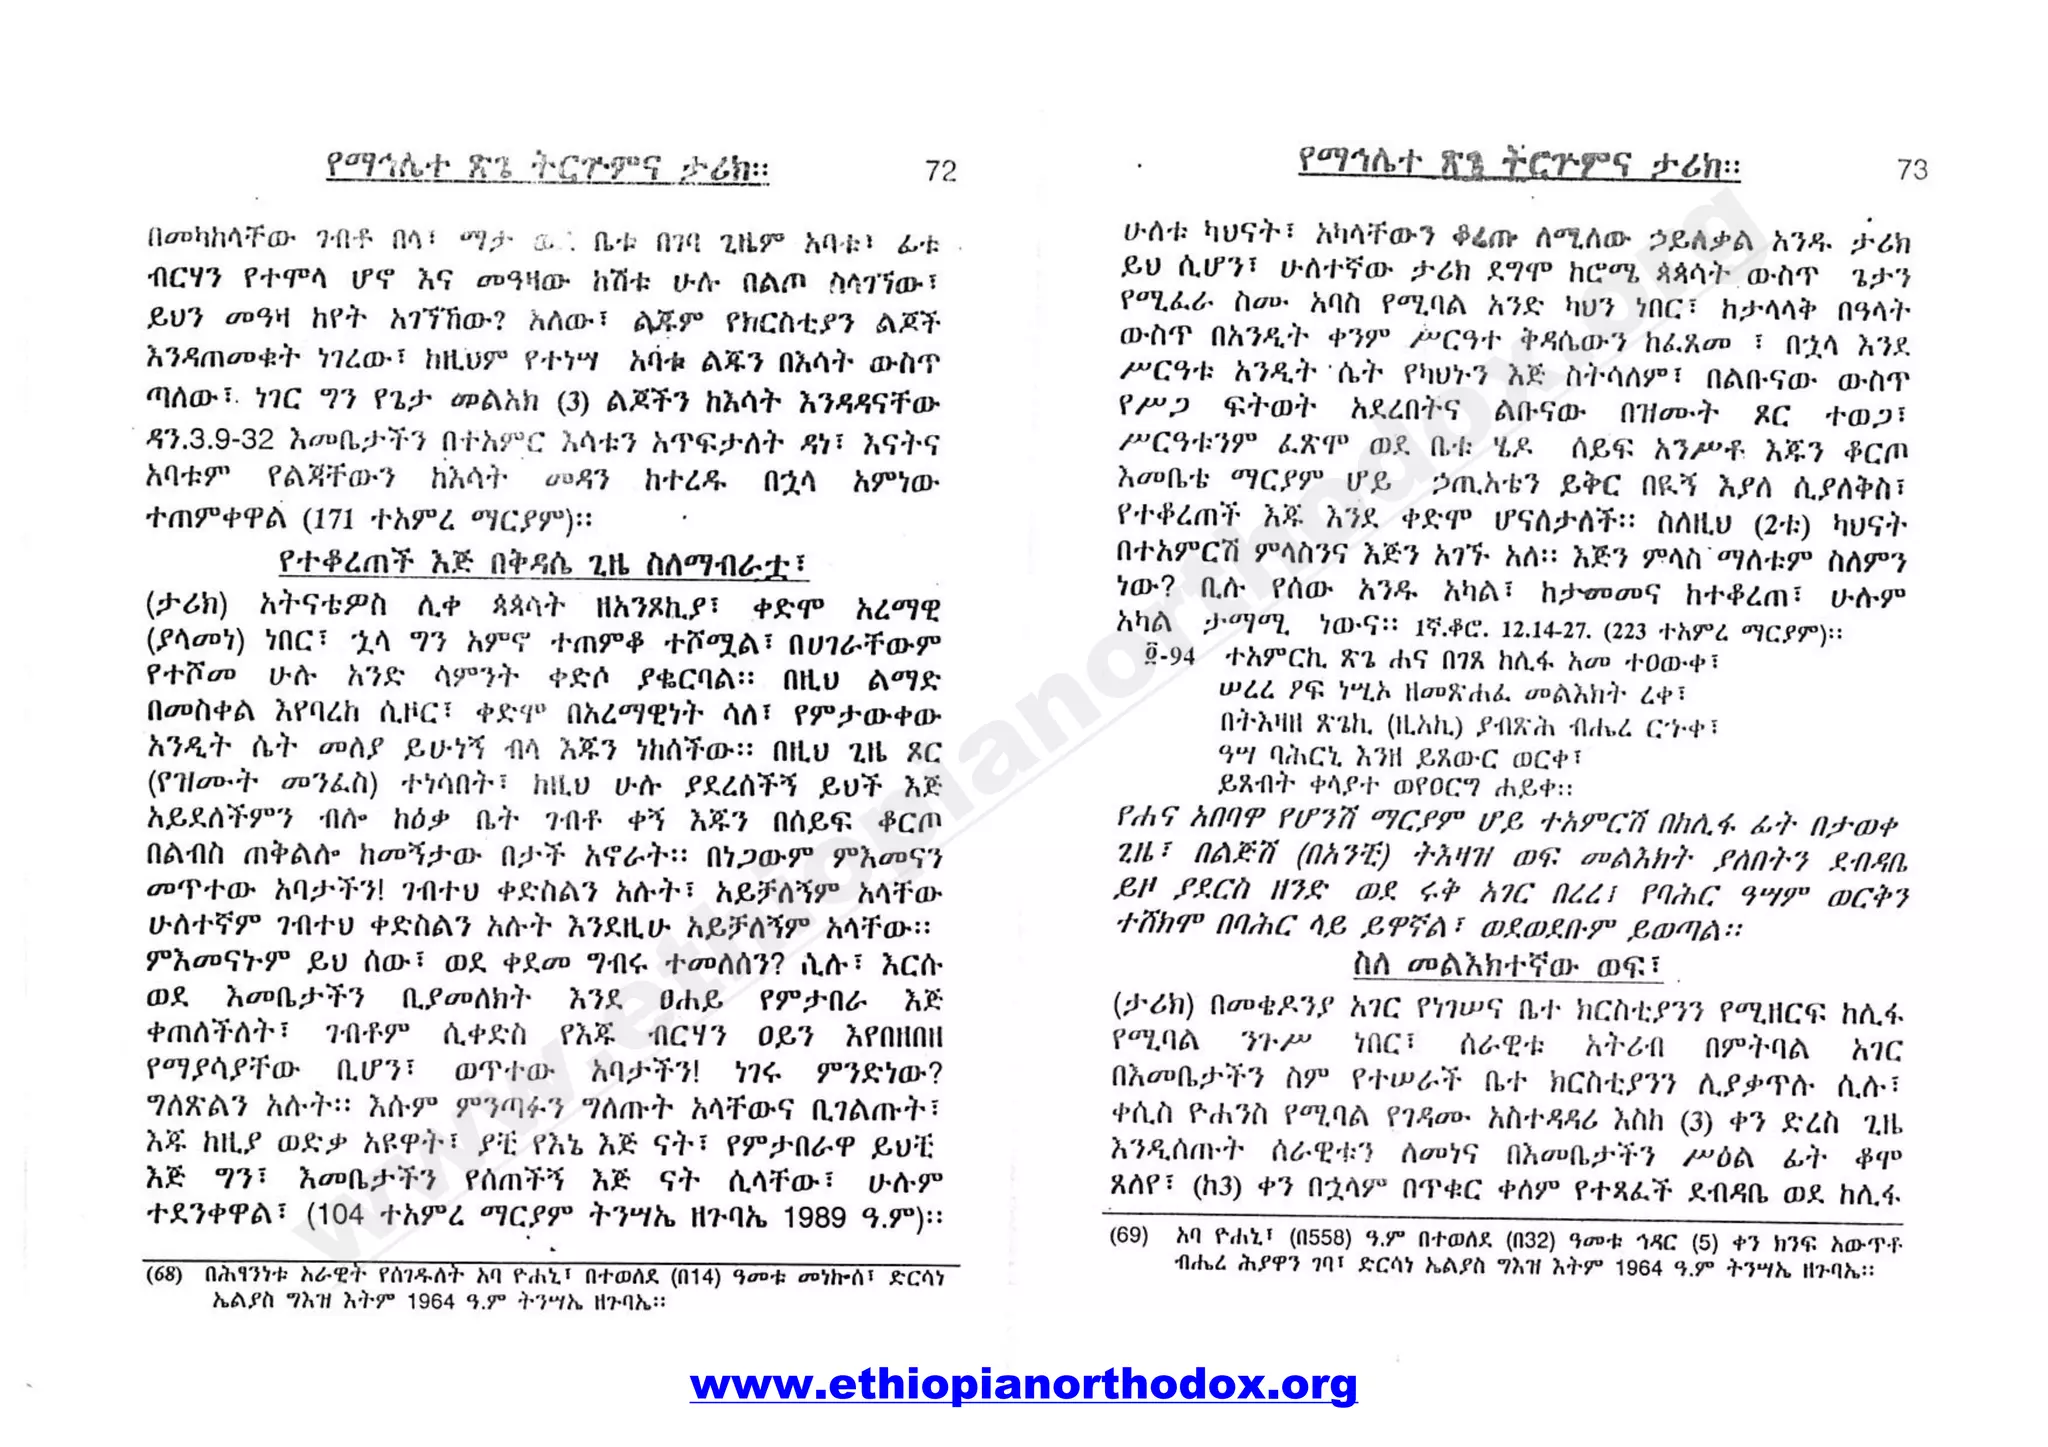 የማኅሌተ ጽጌ ትርጉምና ታሪክ። 72
በመካከላቸው ገብቶ በላ፣ ማታ ቤቱ በገባ ጊዜም አባቱ፣ ፊቱ
ብርሃን የተሞላ ሆኖ እና መዓዛው ከሽቱ ሁሉ በልጦ ስላገኘው፣
ይህን መዓዛ ከየት አገኘኸው? አለው፣ ልጁም የክርስቲያን ልጆች
እንዳጠመቁት ነገረው፣ ከዚህም የተነሣ አባቱ ልጁን በእሳት ውስጥ
ጣለው፣ ነገር ግን የጌታ መልአክ (3) ልጆችን ከእሳት እንዳዳናቸው
ዳን.3.9-32 እመቤታችን በተአምር እሳቱን አጥፍታለት ዳነ፣ እናትና
አባቱም የልጃቸውን ከእሳት መዳን ከተረዱ በኋላ አምነው
ተጠምቀዋል (171 ተአምረ ማርያም)።
የተቆረጠች እጅ በቅዳሴ ጊዜ ስለማብራቷ፣
(ታሪክ) አትናቴዎስ ሊቀ ጳጳሳት ዘአንጾኪያ፣ ቀድሞ አረማዊ
(ያላመነ) ነበር፣ ኋላ ግን አምኖ ተጠምቆ ተሾሟል፣ በሀገራቸውም
የተሾመ ሁሉ አንድ ሳምንት ቀድሶ ያቈርባል። በዚህ ልማድ
በመስቀል እየባረከ ሲዞር፣ ቀድሞ በአረማዊነት ሳለ፣ የምታውቀው
አንዲት ሴት መለያ ይሁነኝ ብላ እጁን ነከሰችው። በዚህ ጊዜ ጾር
(የዝሙት መንፈስ) ተነሳበት፣ ከዚህ ሁሉ ያደረሰችኝ ይህች እጅ
አይደለችምን ብሎ ከዕቃ ቤት ገብቶ ቀኝ እጁን በሰይፍ ቆርጦ
በልብስ ጠቅልሎ ከመኝታው በታች አኖራት። በነጋውም ምእመናን
መጥተው አባታችን! ገብተህ ቀድስልን አሉት፣ አይቻለኝም አላቸው
ሁለተኛም ገብተህ ቀድስልን አሉት እንደዚሁ አይቻለኝም አላቸው።
ምእመናኑም ይህ ሰው፣ ወደ ቀደመ ግብሩ ተመለሰን? ሲሉ፣ እርሱ
ወደ እመቤታችን ቢያመለክት እንደ ፀሐይ የምታበራ እጅ
ቀጠለችለት፣ ገብቶም ሲቀድስ የእጁ ብርሃን ዐይን እየበዘበዘ
የማያሳያቸው ቢሆን፣ ወጥተው አባታችን! ነገሩ ምንድነው?
ግለጽልን አሉት። እሱም ምንጣፉን ግለጡት አላቸውና ቢገልጡት፣
እጁ ከዚያ ወድቃ አዩዋት፣ ያቺ የእኔ እጅ ናት፣ የምታበራዋ ይህቺ
እጅ ግን፣ እመቤታችን የሰጠችኝ እጅ ናት ሲላቸው፣ ሁሉም
ተደንቀዋል፣ (104 ተአምረ ማርያም ትንሣኤ ዘጉባኤ 1989 ዓ.ም)።
(68) በሕፃንነቱ አራዊት የሰገዱለት አባ ዮሐኒ፣ በተወለደ (በ14) ዓመቱ መነኰሰ፣ ድርሳነ
ኤልያስ ግእዝ እትም 1964 ዓ.ም ትንሣኤ ዘጉባኤ።
የማኅሌተ ጽጌ ትርጉምና ታሪክ። 73
ሁለቱ ካህናት፣ አካላቸውን ቆረጡ ለሚለው ኃይለቃል አንዱ ታሪክ
ይህ ሲሆን፣ ሁለተኛው ታሪክ ደግሞ ከሮሜ ጳጳሳት ውስጥ ጌታን
የሚፈራ ስሙ አባስ የሚባል አንድ ካህን ነበር፣ ከታላላቅ በዓላት
ውስጥ በአንዲት ቀንም ሥርዓተ ቅዳሴውን ከፈጸመ ፣ በኋላ እንደ
ሥርዓቱ አንዲት ሴት የካህኑን እጅ ስትሳለም፣ በልቡናው ውስጥ
የሥጋ ፍትወት አደረበትና ልቡናው በዝሙት ጾር ተወጋ፣
ሥርዓቱንም ፈጽሞ ወደ ቤቱ ሄዶ ሰይፍ አንሥቶ እጁን ቆርጦ
እመቤቴ ማርያም ሆይ ኃጢአቴን ይቅር በዪኝ እያለ ሲያለቅስ፣
የተቆረጠች እጁ እንደ ቀድሞ ሆናለታለች። ስለዚህ (2ቱ) ካህናት
በተአምርሽ ምላስንና እጅን አገኙ አለ። እጅን ምላስ ማለቱም ስለምን
ነው? ቢሉ የሰው አንዱ አካል፣ ከታመመና ከተቆረጠ፣ ሁሉም
አካል ታማሚ ነውና። 1ኛ.ቆሮ. 12.14-27. (223 ተአምረ ማርያም)።
፬-94 ተአምርኪ ጽጌ ሐና በገጸ ከሊፋ አመ ተዐውቀ፣
ሠረረ ዖፍ ነሢኦ ዘመጽሐፈ መልእክት ረቀ፣
በትእዛዘ ጽጌኪ (ዚአኪ) ያብጽሕ ብሔረ ርኁቀ፣
ዓሣ ባሕርኒ እንዘ ይጸውር ወርቀ፣
ይጸብት ቀላያተ ወየዐርግ ሐይቀ።
የሐና አበባዋ የሆንሽ ማርያም ሆይ ተአምርሽ በከሊፋ ፊት በታወቀ
ጊዜ፣ በልጅሽ (በአንቺ) ትእዛዝ ወፍ መልእክት ያለበትን ደብዳቤ
ይዞ ያደርስ ዘንድ ወደ ሩቅ አገር በረረ፤ የባሕር ዓሣም ወርቅን
ተሸክሞ በባሕር ላይ ይዋኛል፣ ወደወደቡም ይወጣል።
ስለ መልእክተኛው ወፍ፣
(ታሪክ) በመቄዶንያ አገር የነገሠና ቤተ ክርስቲያንን የሚዘርፍ ከሊፋ
የሚባል ንጉሥ ነበር፣ ሰራዊቱ አትሪብ በምትባል አገር
በእመቤታችን ስም የተሠራች ቤተ ክርስቲያንን ሊያቃጥሉ ሲሉ፣
ቀሲስ ዮሐንስ የሚባል የገዳሙ አስተዳዳሪ እስከ (3) ቀን ድረስ ጊዜ
እንዲሰጡት ሰራዊቱን ለመነና በእመቤታችን ሥዕል ፊት ቆሞ
ጸለየ፣ (ከ3) ቀን በኋላም በጥቁር ቀለም የተጻፈች ደብዳቤ ወደ ከሊፋ
(69) አባ ዮሐኒ፣ (በ558) ዓ.ም በተወለደ (በ32) ዓመቱ ኅዳር (5) ቀን ክንፍ አውጥቶ
ብሔረ ሕያዋን ገባ፣ ድርሳነ ኤልያስ ግእዝ እትም 1964 ዓ.ም ትንሣኤ ዘጉባኤ።
www.ethiopianorthodox.org
www.ethiopianorthodox.org